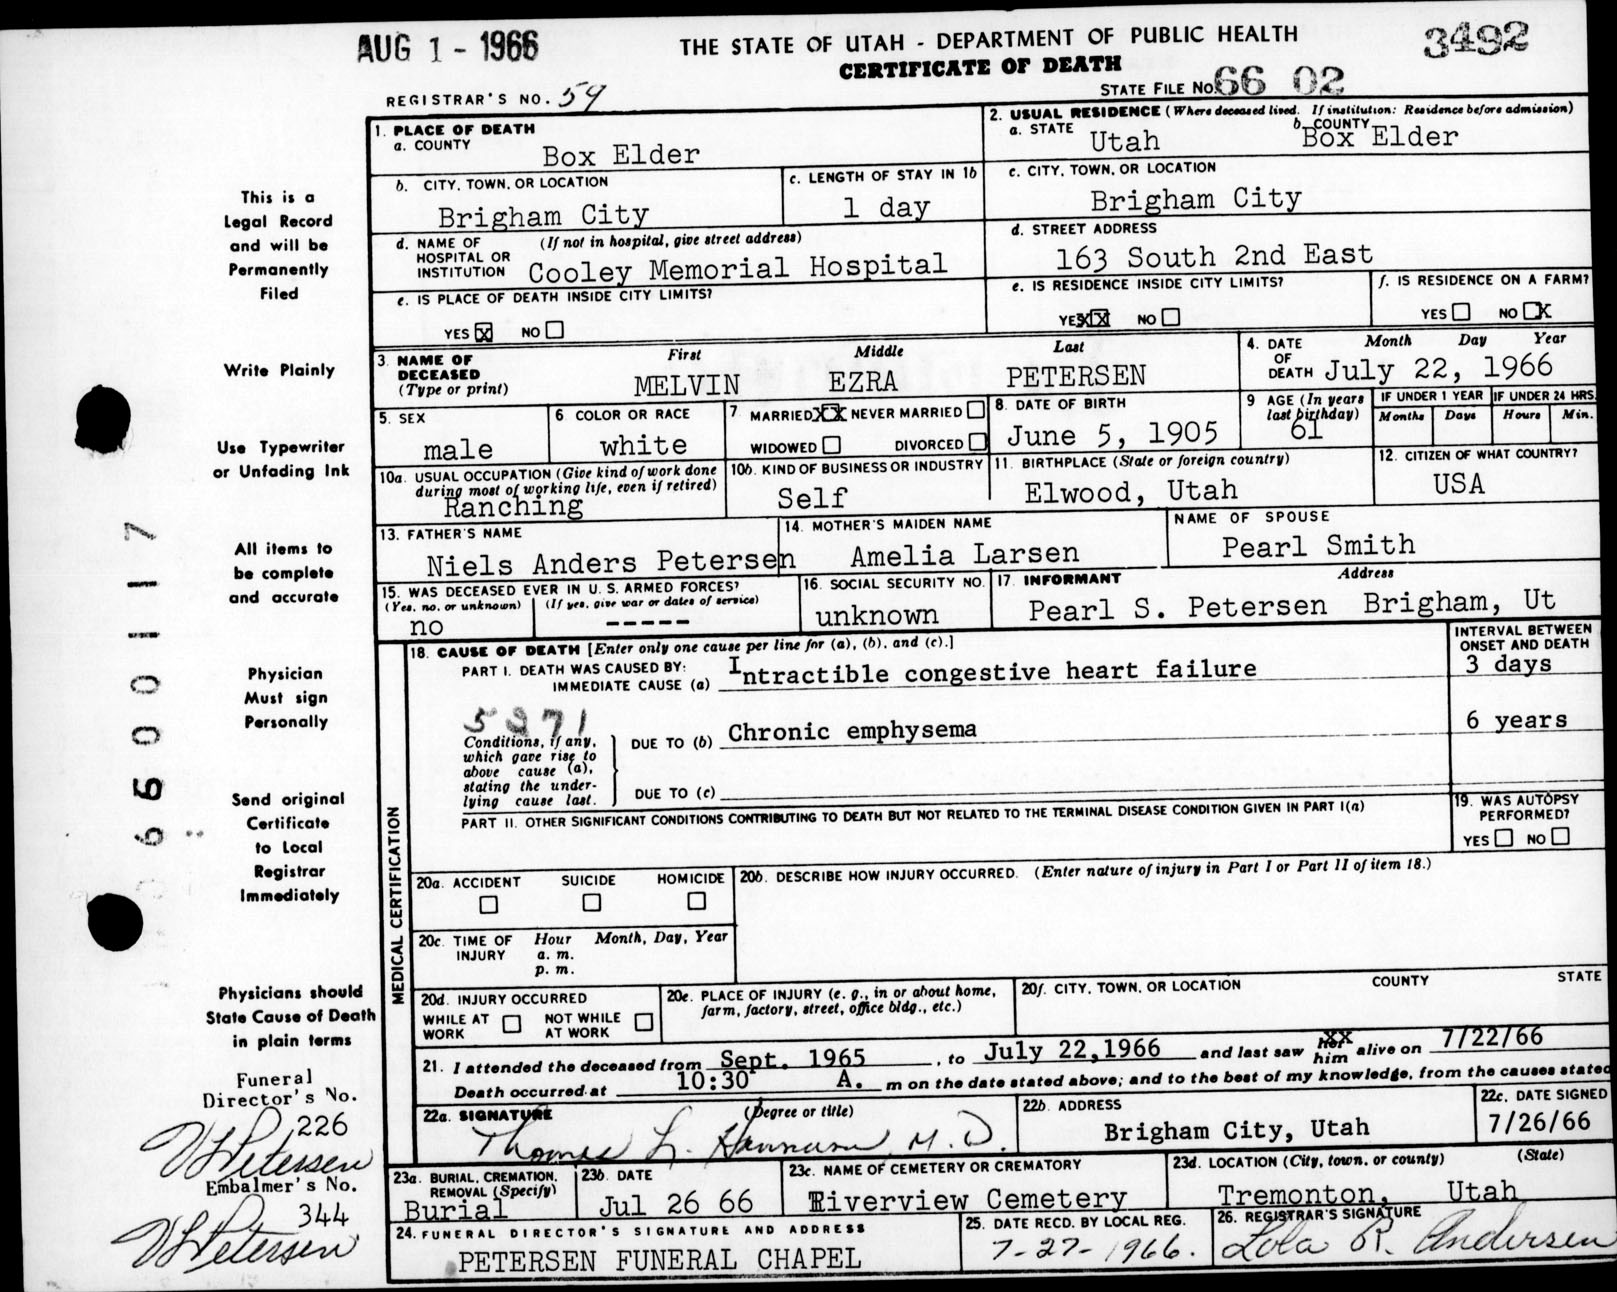 AUG 1 - 1966
THE STATE OF UTAH - DEPARTMENT OF PUBLIC HEALTH
3492
CERTIFICATE OF DEATH
REGISTRAR'S NO. 59
STATE FILE NO. 66 02
1. PLACE OF DEATH
a. COUNTY
Box Elder
2. USUAL RESIDENCE (Where deceased lived. If institution: Residence before admission)
a. STATE Utah
b. COUNTY Box Elder
b. CITY, TOWN, OR LOCATION
Brigham City
c. LENGTH OF STAY IN 1b
1 day
c. CITY, TOWN, OR LOCATION
Brigham City
d. NAME OF HOSPITAL OR INSTITUTION (If not in hospital, give street address)
Cooley Memorial Hospital
d. STREET ADDRESS
163 South 2nd East
e. IS PLACE OF DEATH INSIDE CITY LIMITS?
YES X NO
e. IS RESIDENCE INSIDE CITY LIMITS?
YES XX NO
f. IS RESIDENCE ON A FARM?
YES NO X
3. NAME OF DECEASED (Type or print)
First Middle Last
MELVIN EZRA PETERSEN
4. DATE OF DEATH Month Day Year
July 22, 1966
5. SEX
male
6 COLOR OR RACE
white
7 MARRIED XX NEVER MARRIED
WIDOWED DIVORCED
8. DATE OF BIRTH
June 5, 1905
9 AGE (In years last birthday)
61
IF UNDER 1 YEAR IF UNDER 24 HRS.
Months Days Hours Min.
10a. USUAL OCCUPATION (Give kind of work done during most of working life, even if retired)
Ranching
10b. KIND OF BUSINESS OR INDUSTRY
Self
11. BIRTHPLACE (State or foreign country)
Elwood, Utah
12. CITIZEN OF WHAT COUNTRY?
USA
13. FATHER'S NAME
Niels Anders Petersen
14. MOTHER'S MAIDEN NAME
Amelia Larsen
NAME OF SPOUSE
Pearl Smith
15. WAS DECEASED EVER IN U. S. ARMED FORCES?
(Yes, no, or unknown) (If yes, give war or dates of service)
no -----
16. SOCIAL SECURITY NO.
unknown
17. INFORMANT Address
Pearl S. Petersen Brigham, Ut
MEDICAL CERTIFICATION
18. CAUSE OF DEATH [Enter only one cause per line for (a), (b), and (c).]
INTERVAL BETWEEN ONSET AND DEATH
PART I. DEATH WAS CAUSED BY:
IMMEDIATE CAUSE (a) Intractible congestive heart failure
3 days
5271
Conditions, if any, which gave rise to above cause (a), stating the underlying cause last.
DUE TO (b) Chronic emphysema
6 years
DUE TO (c)
PART II. OTHER SIGNIFICANT CONDITIONS CONTRIBUTING TO DEATH BUT NOT RELATED TO THE TERMINAL DISEASE CONDITION GIVEN IN PART I(a)
19. WAS AUTOPSY PERFORMED?
YES NO
20a. ACCIDENT SUICIDE HOMICIDE
20b. DESCRIBE HOW INJURY OCCURRED. (Enter nature of injury in Part I or Part II of item 18.)
20c. TIME OF INJURY Hour Month, Day, Year
a. m.
p. m.
20d. INJURY OCCURRED
WHILE AT WORK NOT WHILE AT WORK
20e. PLACE OF INJURY (e. g., in or about home, farm, factory, street, office bldg., etc.)
20f. CITY, TOWN, OR LOCATION COUNTY STATE
21. I attended the deceased from Sept. 1965, to July 22,1966 and last saw her him alive on 7/22/66
Death occurred at 10:30 A. m on the date stated above; and to the best of my knowledge, from the causes stated
22a. SIGNATURE (Degree or title)
Thomas L. Hannum, M.D.
22b. ADDRESS
Brigham City, Utah
22c. DATE SIGNED
7/26/66
23a. BURIAL, CREMATION, REMOVAL (Specify)
Burial
23b DATE
Jul 26 66
23c. NAME OF CEMETERY OR CREMATORY
Riverview Cemetery
23d. LOCATION (City, town, or county) (State)
Tremonton, Utah
24. FUNERAL DIRECTOR'S SIGNATURE AND ADDRESS
PETERSEN FUNERAL CHAPEL
25. DATE RECD. BY LOCAL REG.
7-27-1966.
26. REGISTRAR'S SIGNATURE
Lola R. Andersen
This is a
Legal Record
and will be
Permanently
Filed
Write Plainly
Use Typewriter
or Unfading Ink
All items to
be complete
and accurate
Physician
Must sign
Personally
Send original
Certificate
to Local
Registrar
Immediately
Physicians should
State Cause of Death
in plain terms
Funeral
Director's No.
226
V L Petersen
Embalmer's No.
344
V L Petersen
66001117